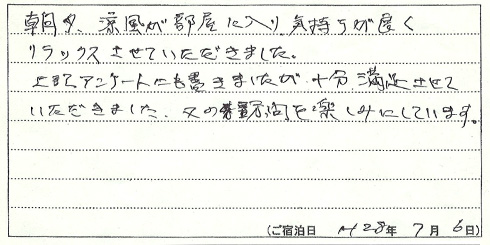 朝夕、涼風が部屋に入り気持ちが良く
リラックスさせていただきました。
上記アンケートにも書きましたが、十分満足させて
いただきました、又の訪問を楽しみにしています。
(ご宿泊日 H28年 7月 6日)